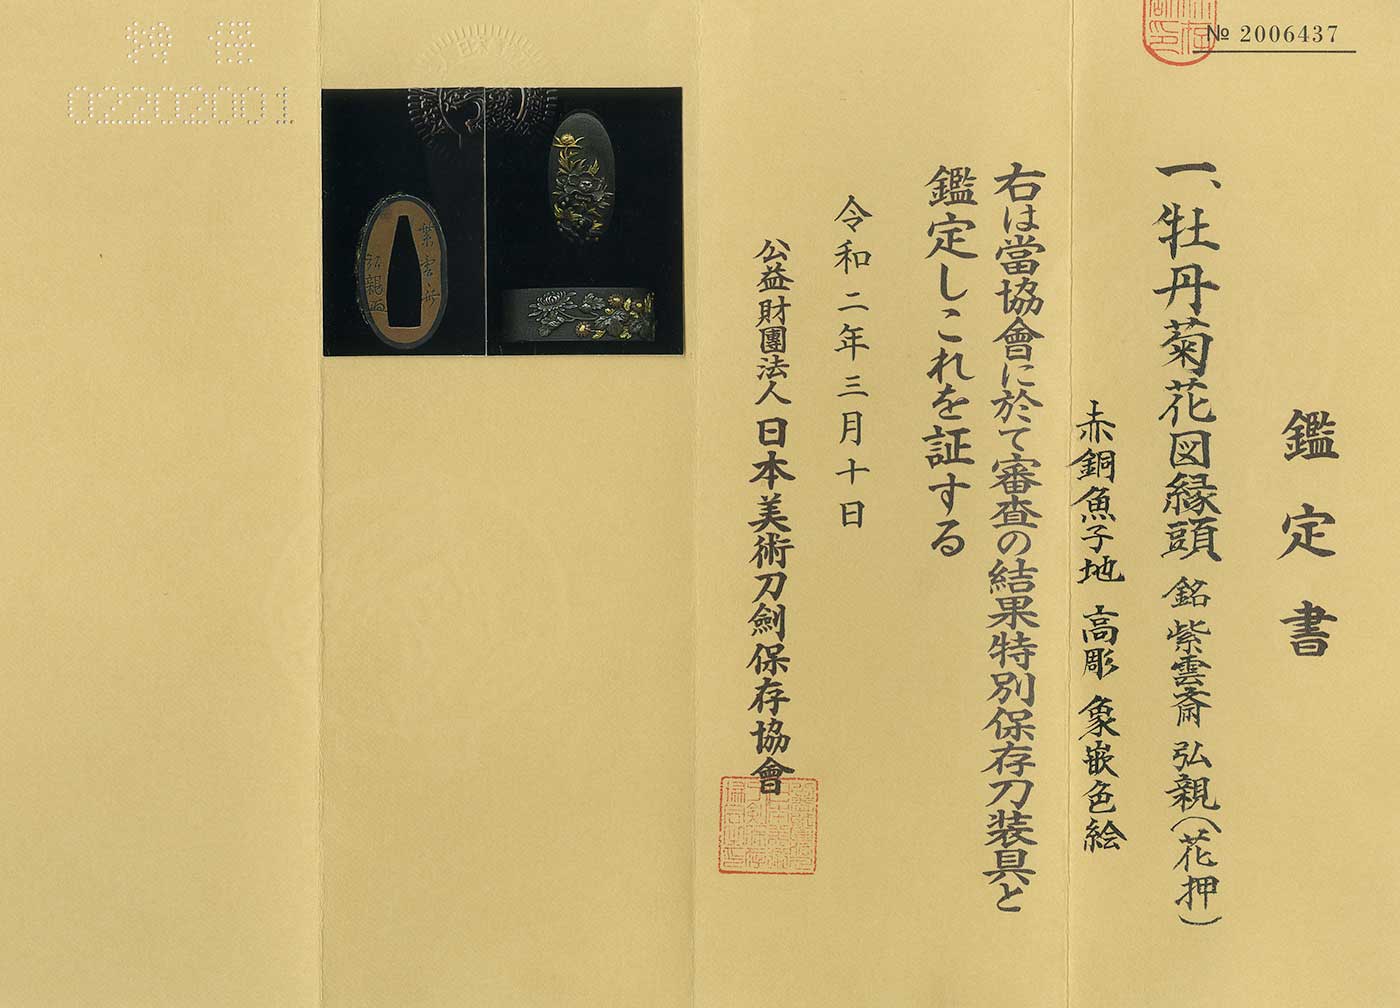 № 2006437
鑑定書
一、牡丹菊花図縁頭 銘 紫雲斎 弘親(花押)
赤銅魚子地 高彫 象嵌色絵
右は當協會に於て審査の結果特別保存刀装具と
鑑定しこれを証する
令和二年三月十日
公益財團法人 日本美術刀劍保存協會
紫雲斎
弘親
特保
02202001